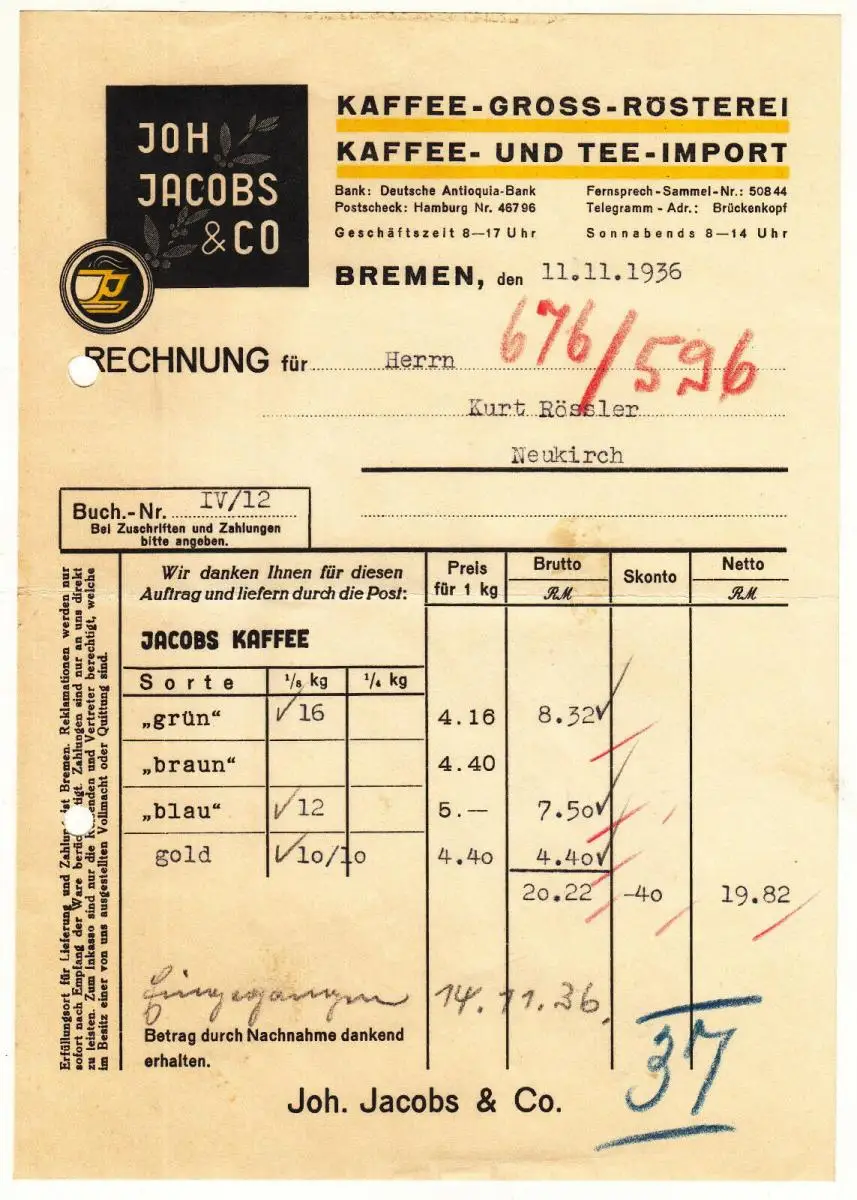 JOH
JACOBS
& CO
KAFFEE-GROSS-RÖSTEREI
KAFFEE- UND TEE-IMPORT
Bank: Deutsche Antioquia-Bank Fernsprech-Sammel-Nr.: 50844
Postscheck: Hamburg Nr. 46796 Telegramm-Adr.: Brückenkopf
Geschäftszeit 8—17 Uhr Sonnabends 8—14 Uhr
BREMEN, den 11.11.1936
676/596
RECHNUNG für Herrn
Kurt Rössler
Neukirch
Buch.-Nr. IV/12
Bei Zuschriften und Zahlungen
bitte angeben.
Wir danken Ihnen für diesen
Auftrag und liefern durch die Post:
Preis für 1 kg Brutto RM Skonto Netto RM
JACOBS KAFFEE
Sorte 1/8 kg 1/4 kg
„grün“ 16 4.16 8.32
„braun“ 4.40
„blau“ 12 5.— 7.50
gold 10/10 4.40 4.40
20.22 -40 19.82
Eingegangen 14.11.36.
Betrag durch Nachnahme dankend
erhalten.
37
Joh. Jacobs & Co.
Erfüllungsort für Lieferung und Zahlung ist Bremen. Reklamationen werden nur
sofort nach Empfang der Ware berücksichtigt. Zahlungen sind nur an uns direkt
zu leisten. Zum Inkasso sind nur die Reisenden und Vertreter berechtigt, welche
im Besitz einer von uns ausgestellten Vollmacht oder Quittung sind.